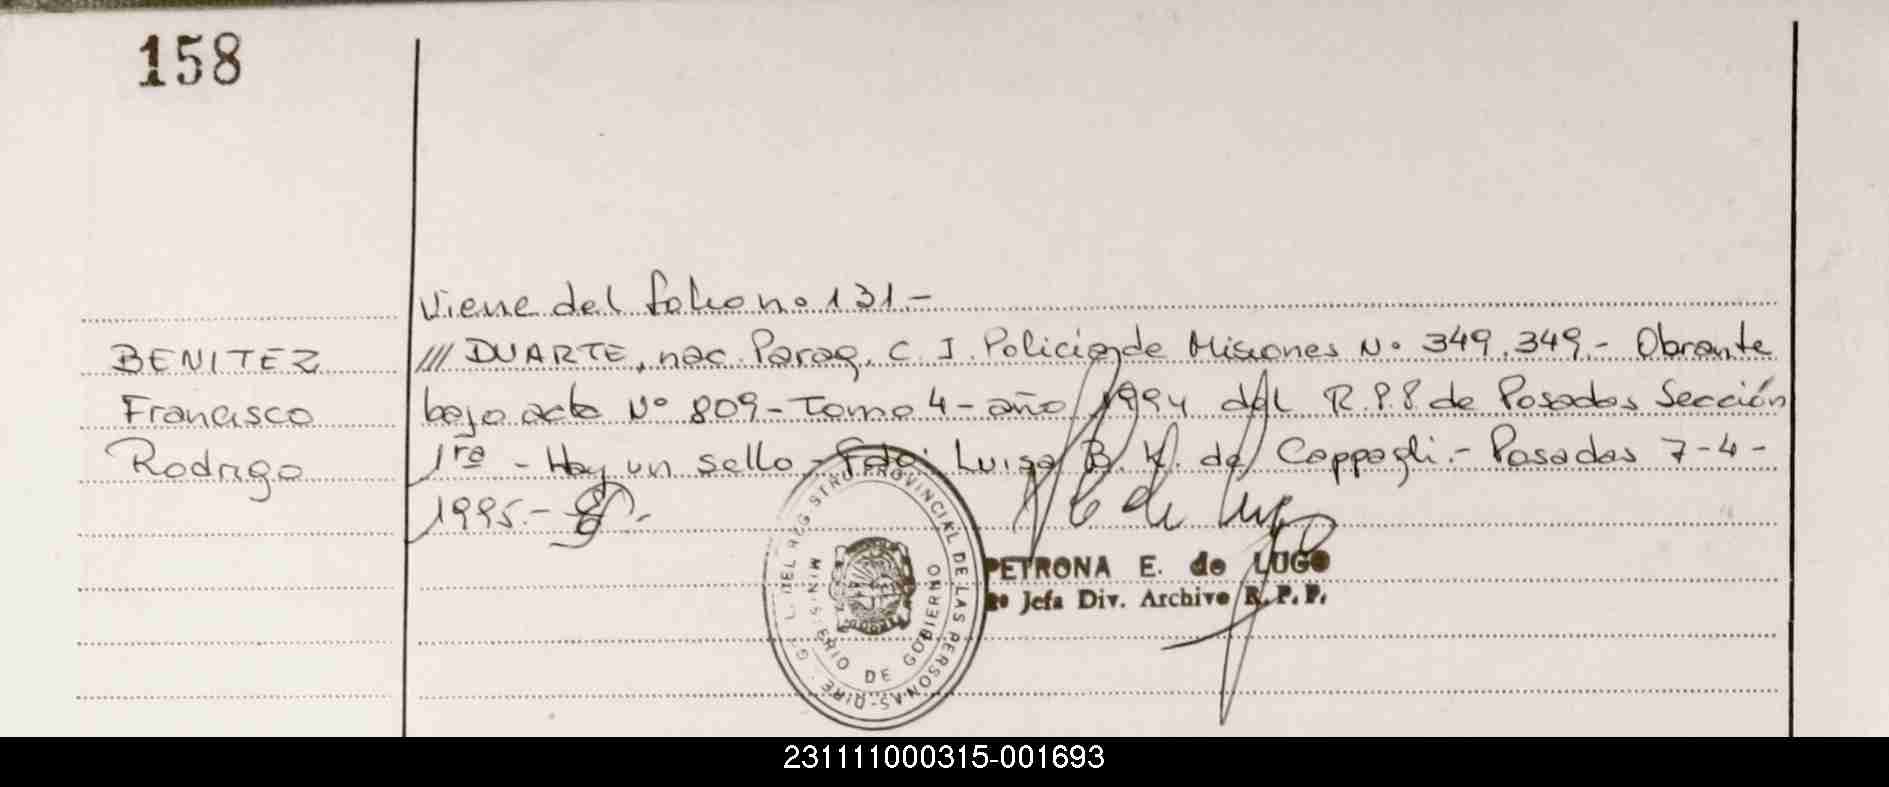 158
Viene del folio no 131.-
BENITEZ /// DUARTE, nac. Parag. C. I. Policia de Misiones Nº 349.349.- Obrante
Francisco bajo acta Nº 809- Tomo 4- año 1994 del R.P.P de Posadas Sección
Rodrigo 1ra - Hay un sello - Fdo: Luisa B. K. de Coppagli.- Posadas 7-4-
1995.-
PETRONA E. de LUGO
2º Jefa Div. Archivo R. P. P.
REGISTRO PROVINCIAL DE LAS PERSONAS-
MINISTERIO DE GOBIERNO
231111000315-001693